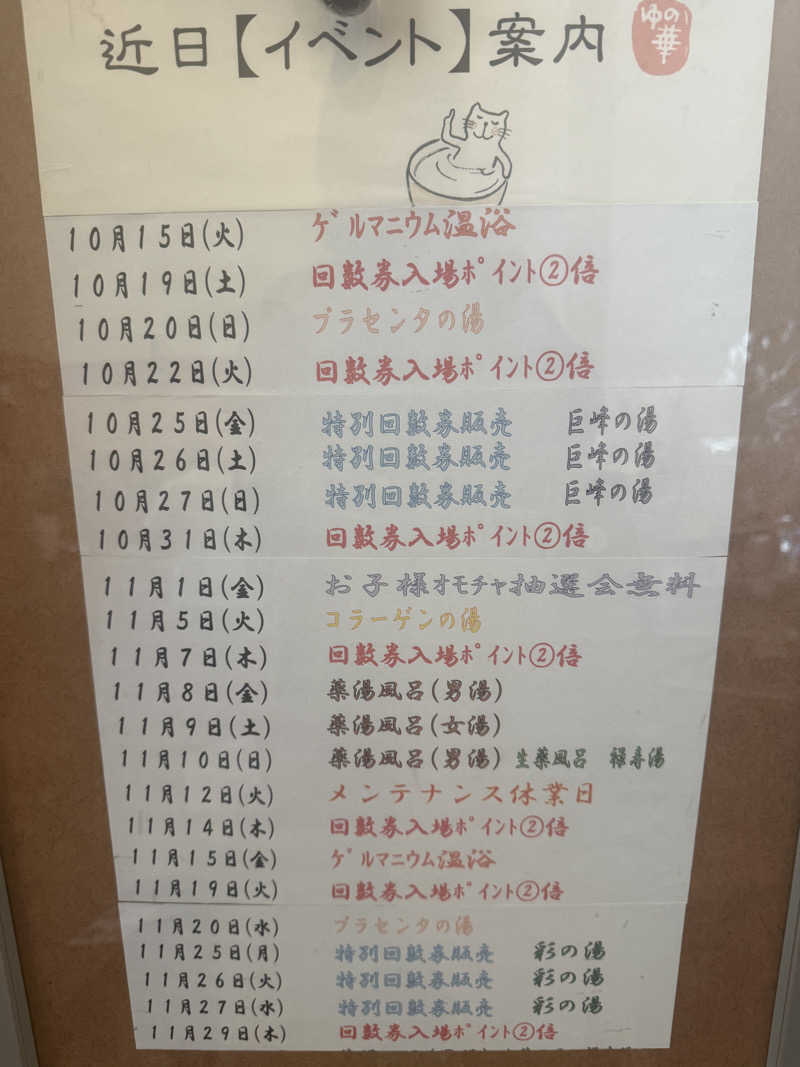 近日【イベント】案内
ゆの華
10月15日(火) ゲルマニウム温浴
10月19日(土) 回数券入場ポイント②倍
10月20日(日) プラセンタの湯
10月22日(火) 回数券入場ポイント②倍
10月25日(金) 特別回数券販売 巨峰の湯
10月26日(土) 特別回数券販売 巨峰の湯
10月27日(日) 特別回数券販売 巨峰の湯
10月31日(木) 回数券入場ポイント②倍
11月1日(金) お子様オモチャ抽選会無料
11月5日(火) コラーゲンの湯
11月7日(木) 回数券入場ポイント②倍
11月8日(金) 薬湯風呂(男湯)
11月9日(土) 薬湯風呂(女湯)
11月10日(日) 薬湯風呂(男湯) 生薬風呂 禄寿湯
11月12日(火) メンテナンス休業日
11月14日(木) 回数券入場ポイント②倍
11月15日(金) ゲルマニウム温浴
11月19日(火) 回数券入場ポイント②倍
11月20日(水) プラセンタの湯
11月25日(月) 特別回数券販売 彩の湯
11月26日(火) 特別回数券販売 彩の湯
11月27日(水) 特別回数券販売 彩の湯
11月29日(木) 回数券入場ポイント②倍